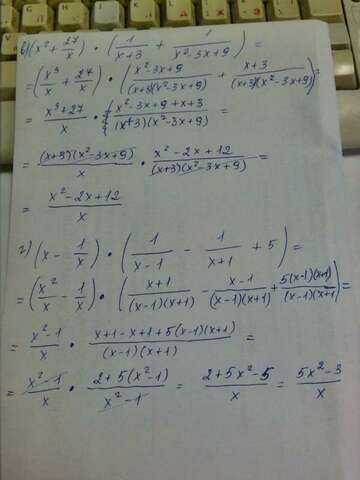 в) (x² + 27/x) · (1/(x+3) + 1/(x²-3x+9)) =
= (x³/x + 27/x) · ((x²-3x+9)/((x+3)(x²-3x+9)) + (x+3)/((x+3)(x²-3x+9))) =
= (x³+27)/x · (x²-3x+9+x+3)/((x+3)(x²-3x+9)) =
= ((x+3)(x²-3x+9))/x · (x²-2x+12)/((x+3)(x²-3x+9)) =
= (x²-2x+12)/x
г) (x - 1/x) · (1/(x-1) - 1/(x+1) + 5) =
= (x²/x - 1/x) · ((x+1)/((x-1)(x+1)) - (x-1)/((x-1)(x+1)) + 5(x-1)(x+1)/((x-1)(x+1))) =
= (x²-1)/x · (x+1-x+1+5(x-1)(x+1))/((x-1)(x+1)) =
= (x²-1)/x · (2+5(x²-1))/(x²-1) = (2+5x²-5)/x = (5x²-3)/x